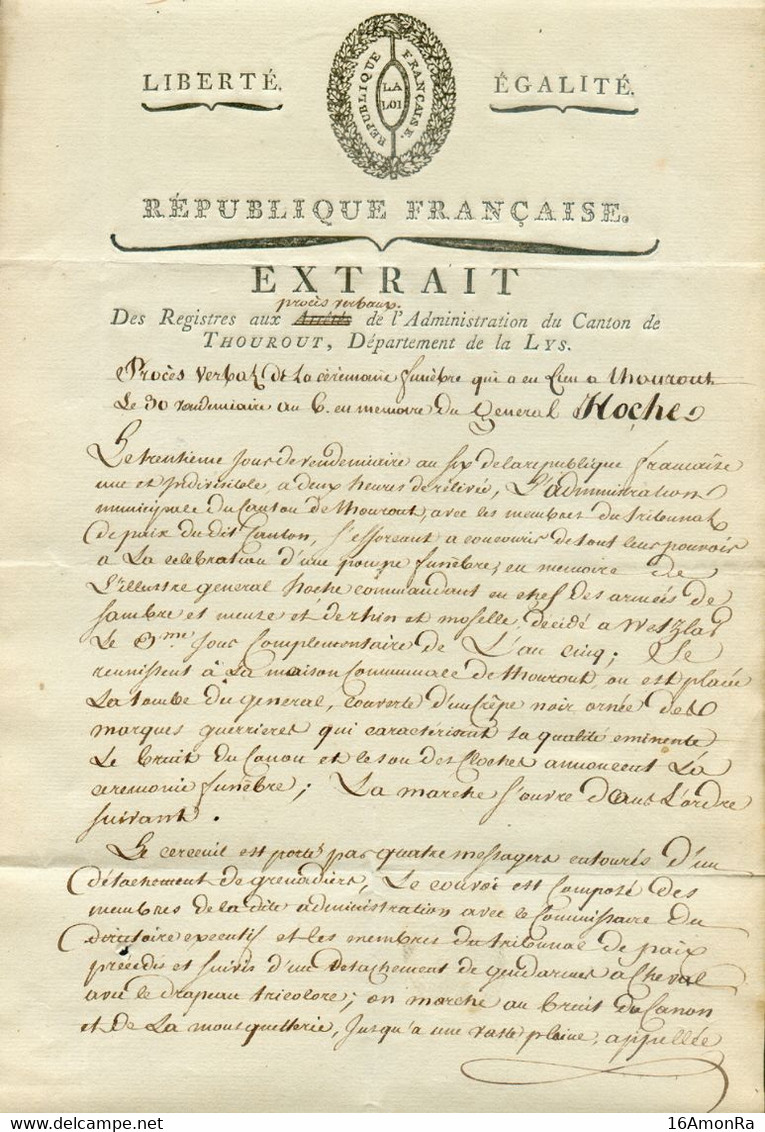 LIBERTÉ.
ÉGALITÉ.
RÉPUBLIQUE FRANÇAISE.
LA
LOI
RÉPUBLIQUE FRANÇAISE.
EXTRAIT
procès verbaux.
Des Registres aux Arrêtés de l'Administration du Canton de
THOUROUT, Département de la LYS.
Procès verbal de la cèremonie funèbre qui a eu lieu a thourout
Le 30 vendemiaire an 6. en memoire du general Hoche
Le trentieme jour de vendemiaire an six de la republique francaise
une et indivisible, a deux heures de rélivée, L'administration
municipale du Canton de thourout, avec les membres du tribunal
de paix du dit Canton, s'efforcant a concourir de tout leur pouvoir
a La celebration d'une pompe funêbre, en memoire de
L'illustre general hoche commandant en chef des armeés de
sambre et meuse et de rhin et moselle, decidé a Wetzlar
Le 3me jour Complementaire de L'an cinq; Se
reunissent à La maison Communale de thourout, ou est placée
La tombe du general, couverte d'un Crêpe noir ornée des
marques guerrieres qui caractérisent sa qualité eminente
Le bruit du Canon et le son des Cloches annoncent La
ceremonie funêbre; La marche s'ouvre dans L'ordre
suivant.
Le cerceuil est porté par quatre messagers entourés d'un
détachement de grenadiers, Le convoi est Composé des
membres de la dite administration avec le Commissaire du
directoire executif et les membres du tribunal de paix
précédés et suivis d'un detachement de gendarmes a cheval
avec le drapeau tricolore; en marche au bruit du Canon
et de La mousquetterie, jusqu'a une vaste plaine, appellée
16AmonRa